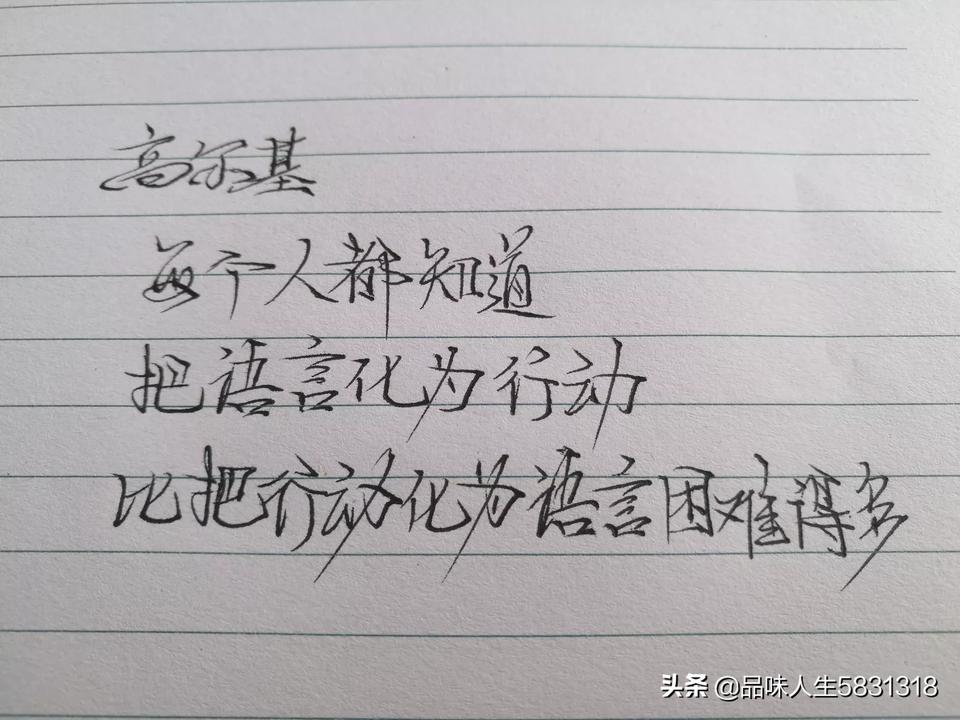 高尔基
每个人都知道
把语言化为行动
比把行动化为语言困难得多
头条 @品味人生5831318